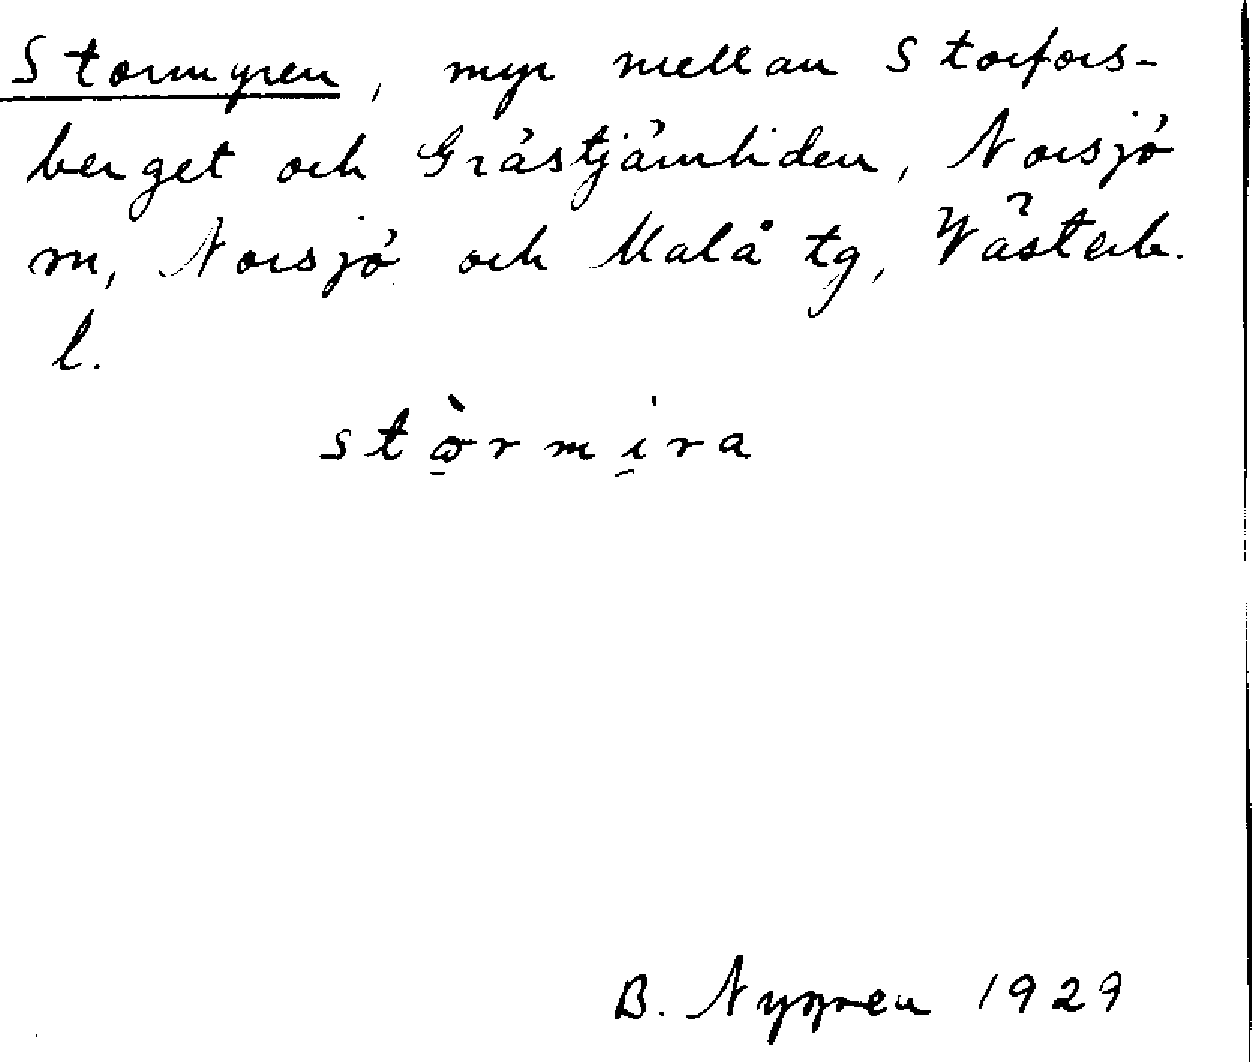 Stormyren, myr mellan Storfors-
berget och Grästjärnliden, Norsjö
sn, Norsjö och Malå tg, Västerb.
l.
stòrmira
B. Nygren 1929